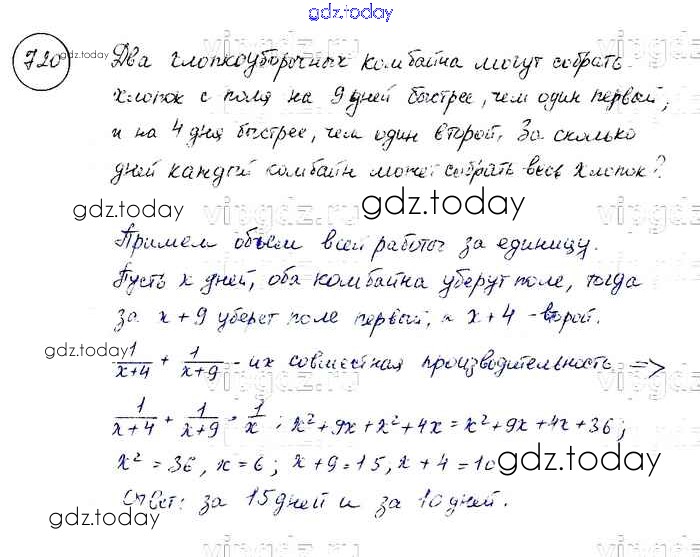 gdz.today
720 gdz.today Два хлопкоуборочных комбайна могут собрать
хлопок с поля на 9 дней быстрее, чем один первый,
и на 4 дня быстрее, чем один второй. За сколько
дней каждый комбайн может собрать весь хлопок?
gdz.today gdz.today
vipgdz.ru
Примем объем всей работы за единицу.
Пусть x дней, оба комбайна уберут поле, тогда
за x+9 уберет поле первый, а x+4 - второй.
gdz.today
1/(x+4) + 1/(x+9) - их совместная производительность =>
1/(x+4) + 1/(x+9) = 1/x ; x²+9x+x²+4x=x²+9x+4x+36;
x²=36, x=6; x+9=15, x+4=10 gdz.today
Ответ: за 15 дней и за 10 дней.
gdz.today